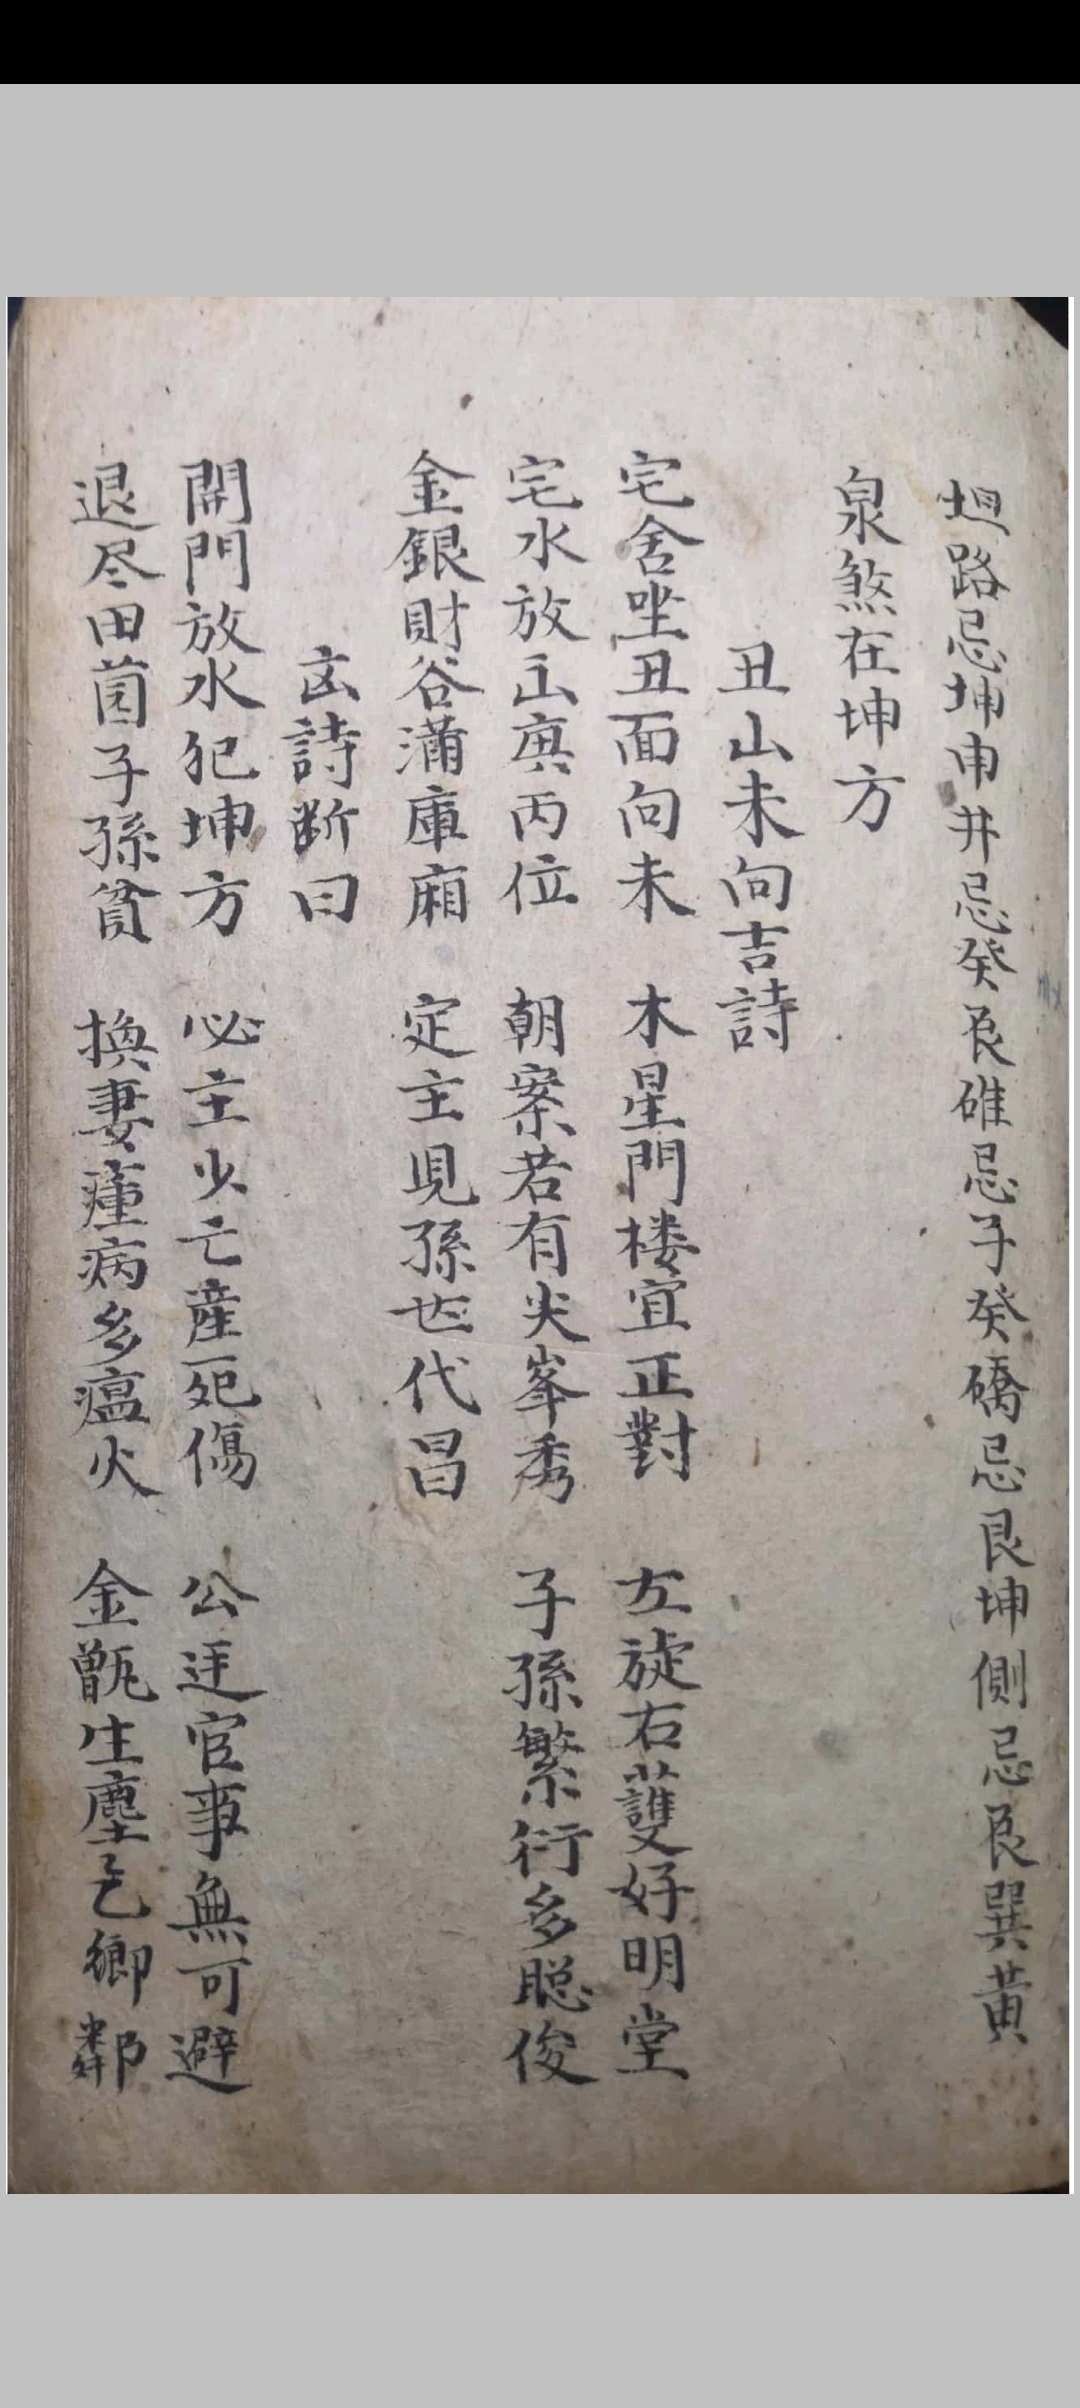 路忌坤申井忌癸艮碓忌子癸礄忌艮坤側忌艮巽黄
泉煞在坤方
丑山未向吉詩
宅舍坐丑面向未 木星門楼宜正對 左旋右護好明堂
宅水放庚丙位 朝案若有尖峯秀 子孫繁衍多聡俊
金銀財谷滿庫廂 定主児孫世代昌
詩断曰
開門放水犯坤方 必主少亡産死傷 公廷官事無可避
退尽田园子孫貧 換妻瘇病多瘟火 金甑生塵乞鄉鄰